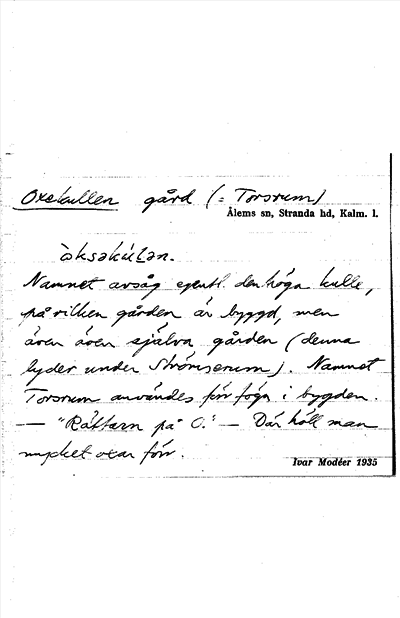 Oxekullen gård (= Torsrum)
Ålems sn, Stranda hd, Kalm. l.
òksakúlan.
Namnet avsåg egentl. den höga kulle,
på vilken gården är byggd, men
även även själva gården (denna
lyder under Strömserum). Namnet
Torsrum användes förr föga i bygden.
— "Rättarn på O." — Där höll man
mycket oxar förr.
Ivar Modéer 1935